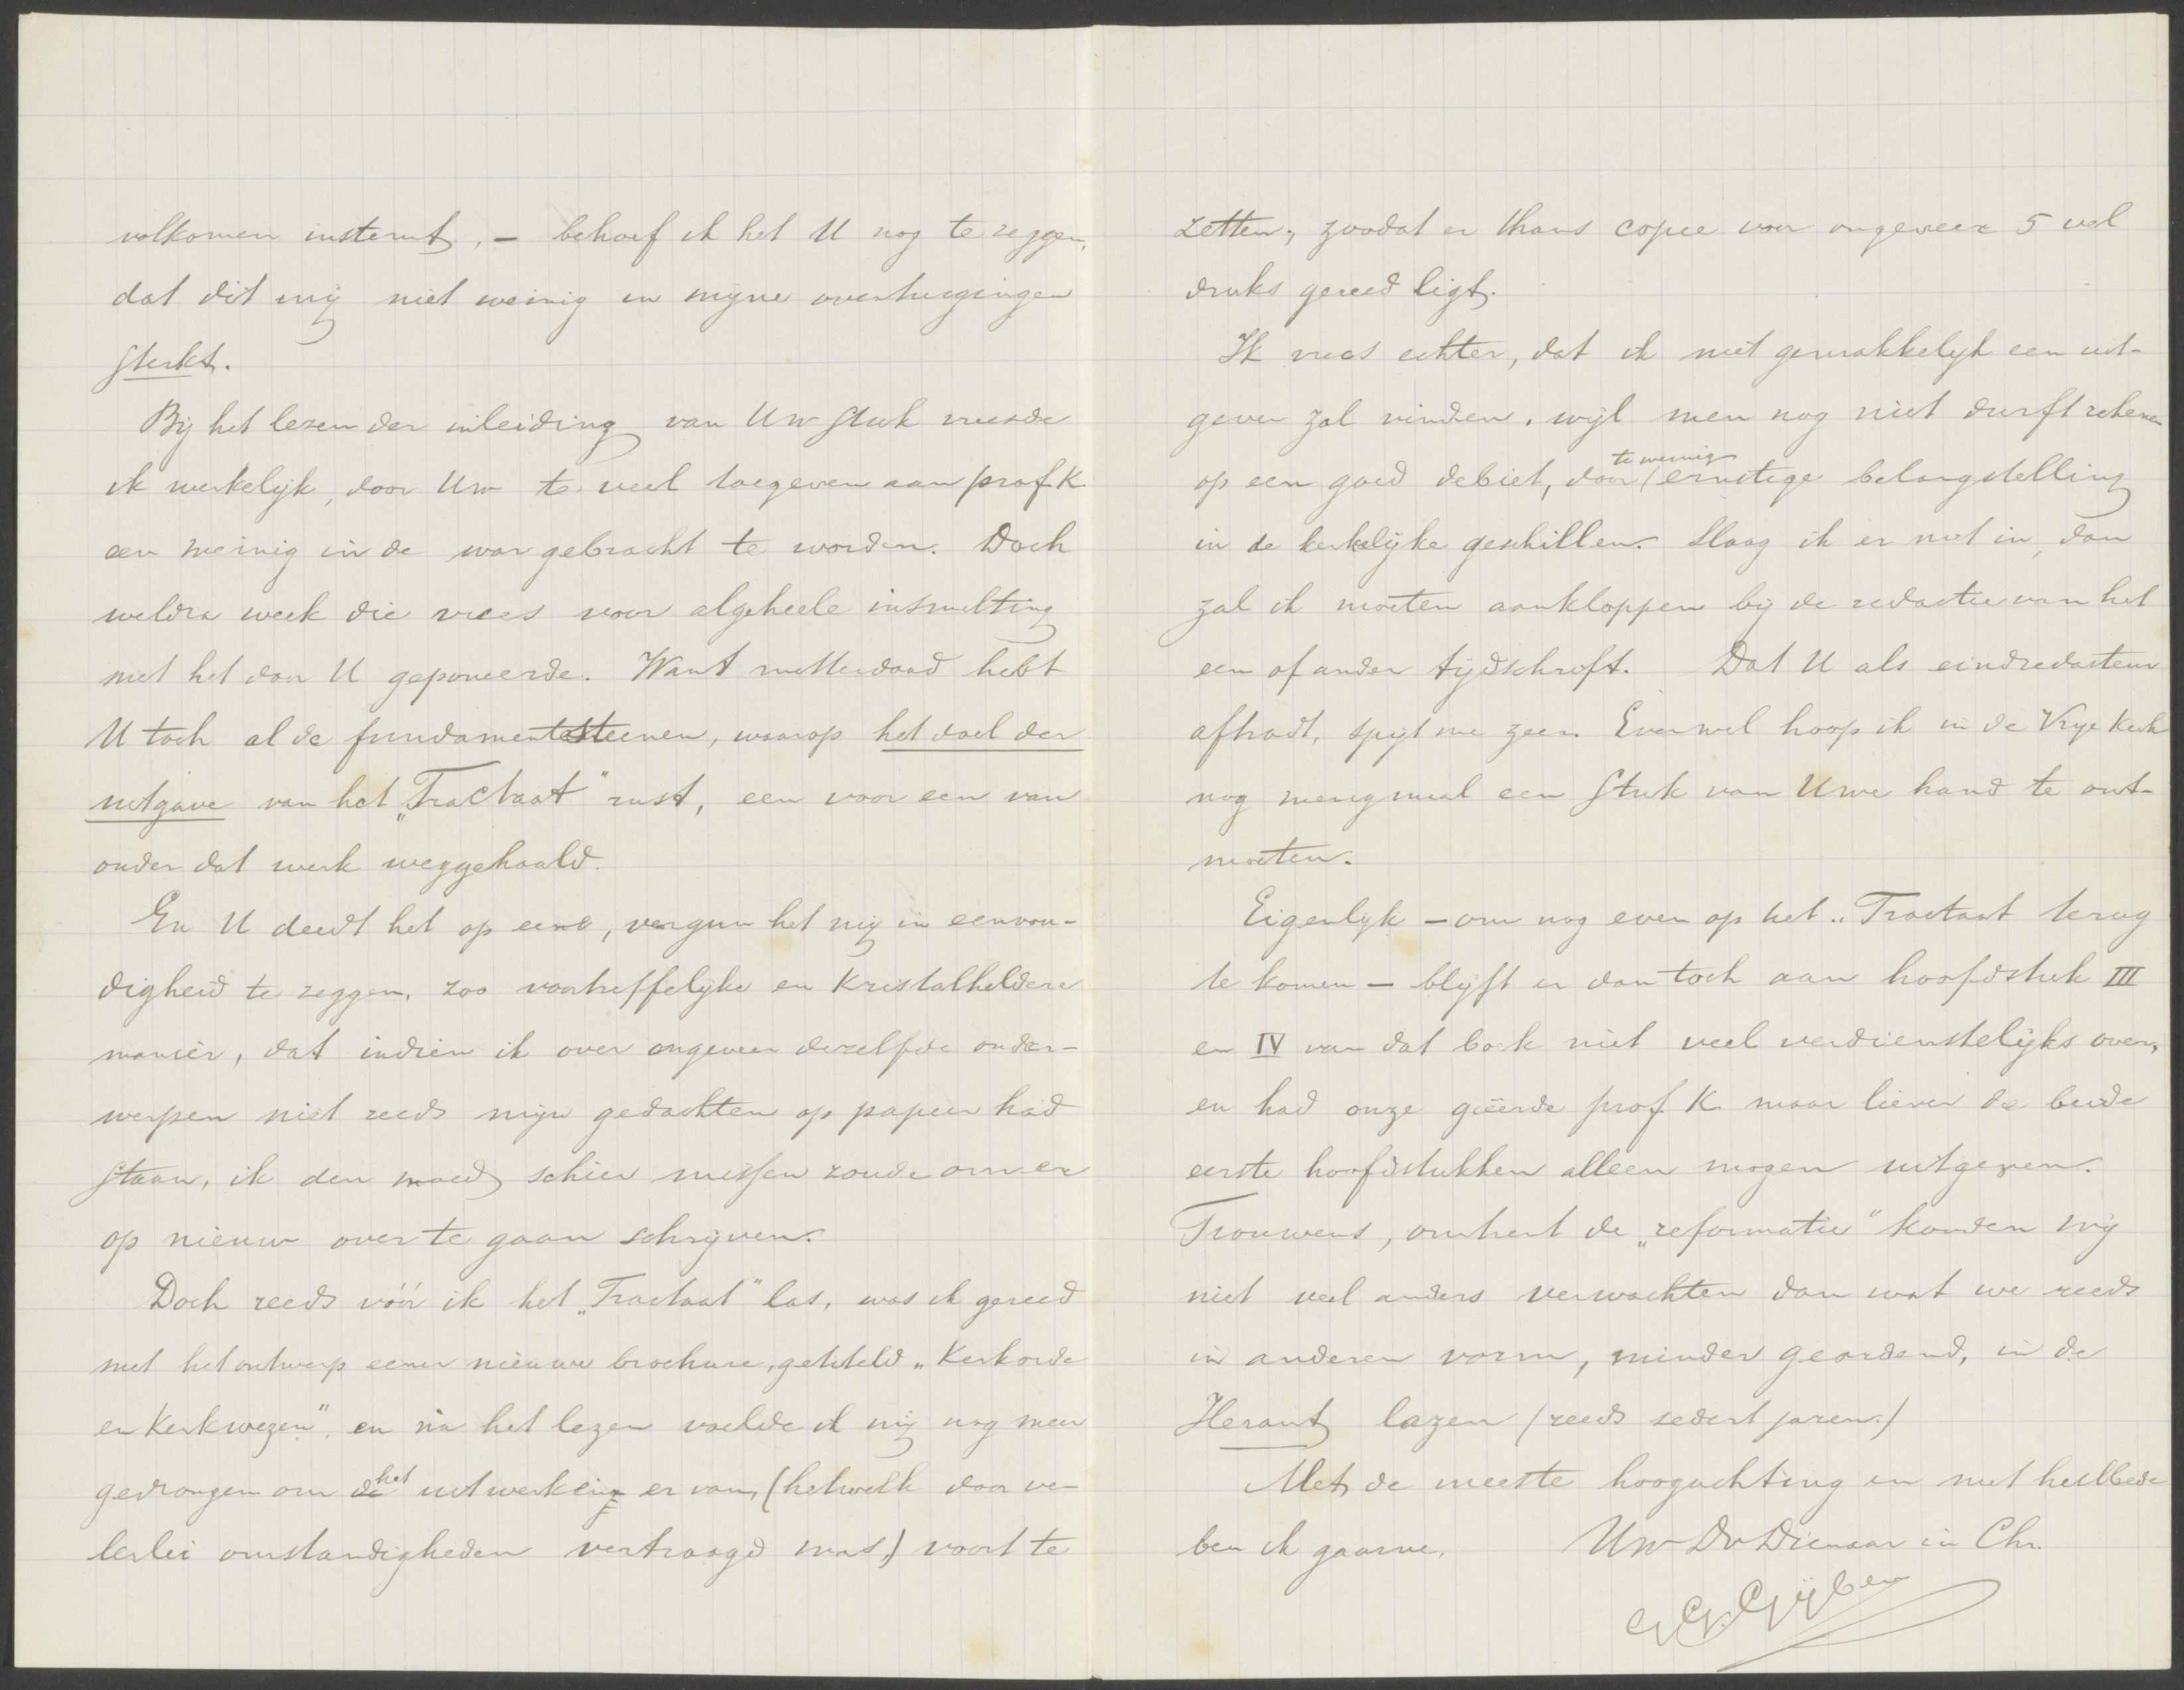 volkomen instemt, – behoef ik het U nog te zeggen,
dat dit mij niet weinig in mijne overtuigingen
sterkt.
Bij het lezen der inleiding van Uw stuk vreesde
ik werkelijk, door Uw te veel toegeven aan prof. K.
een weinig in de war gebracht te worden. Doch
weldra week die vrees voor algeheele insmelting
met het door U geponeerde. Want metterdaad hebt
U toch al de fundamentsteenen, waarop het doel der
uitgave van het „Tractaat" rust, een voor een van
onder dat werk weggehaald.
En U deedt het op eene, vergun het mij in eenvou-
digheid te zeggen, zoo voortreffelijke en kristalheldere
manier, dat indien ik over ongeveer dezelfde onder-
werpen niet reeds mijn gedachten op papier had
staan, ik den moed schier missen zoude om er
op nieuw over te gaan schrijven.
Doch reeds vóór ik het „Tractaat" las, was ik gereed
met het ontwerp eener nieuwe brochure, getiteld „Kerkorde
en Kerkwezen", en na het lezen voelde ik mij nog meer
gedrongen om de het uitwerking er van, (hetwelk door ve-
lerlei omstandigheden vertraagd was,) voort te
zetten, zoodat er thans copie voor ongeveer 5 vel
druks gereed ligt.
Ik vrees echter, dat ik niet gemakkelijk een uit-
gever zal vinden, wijl men nog niet durft rekenen
op een goed debiet, door te weinig ernstige belangstelling
in de kerkelijke geschillen. Slaag ik er niet in, dan
zal ik moeten aankloppen bij de redactie van het
een of ander tijdschrift. Dat U als eindredacteur
aftradt, spijt me zeer. Evenwel hoop ik in de Vrije Kerk
nog menigmaal een stuk van Uwe hand te ont-
moeten.
Eigenlijk – om nog even op het „Tractaat terug
te komen – blijft er dan toch aan hoofdstuk III
en IV van dat boek niet veel verdienstelijks over,
en had onze geëerde prof. K. maar liever de beide
eerste hoofdstukken alleen mogen uitgeven.
Trouwens, omtrent de „reformatie" konden wij
niet veel anders verwachten dan wat we reeds
in anderen vorm, minder geordend, in de
Heraut lazen (reeds sedert jaren.)
Met de meeste hoogachting en met heilbede
ben ik gaarne, Uw Dv Dienaar in Chr.